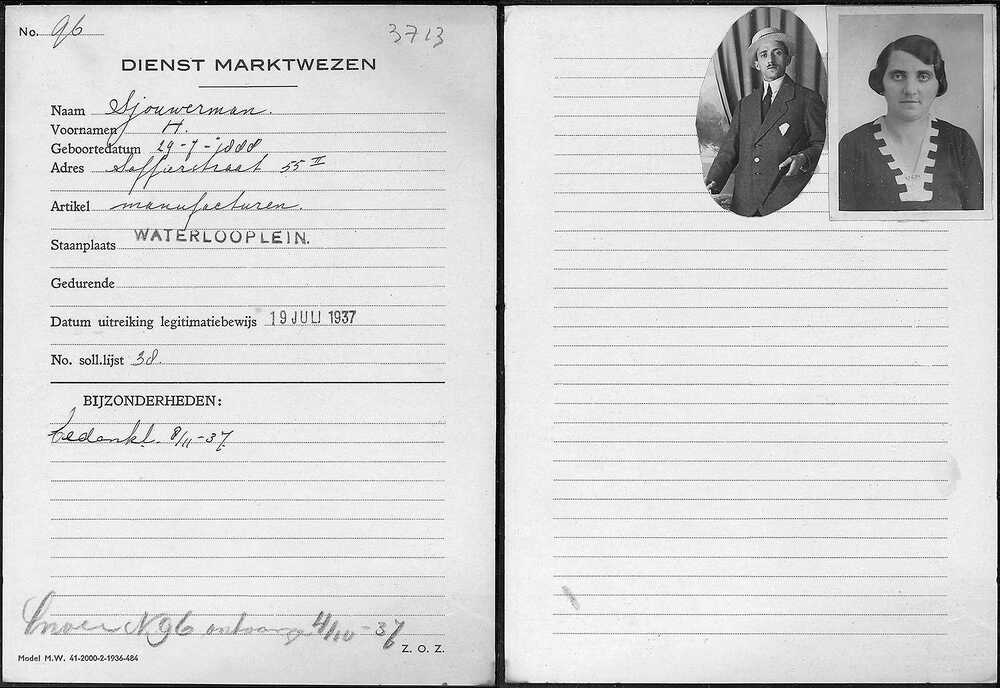 No. 96
3713
DIENST MARKTWEZEN
Naam Sjouwerman.
Voornamen H.
Geboortedatum 29-7-1888
Adres Saffierstraat 55 II
Artikel manufacturen.
Staanplaats WATERLOOPLEIN.
Gedurende
Datum uitreiking legitimatiebewijs 19 JULI 1937
No. soll.lijst 38.
BIJZONDERHEDEN:
bedankt. 8/11-37
N 96 4/10-37
Z. O. Z.
Model M.W. 41-2000-2-1936-484